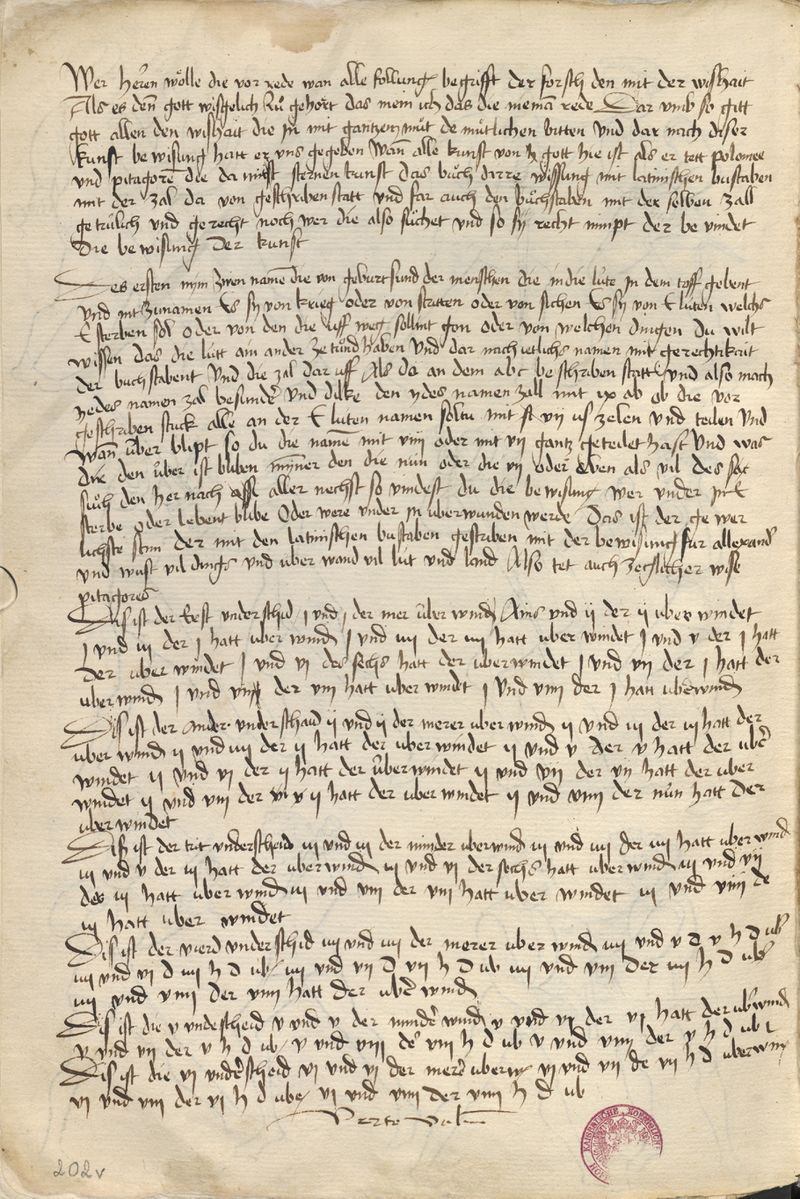 Wer heren wölle die vor rede wan alle kollung begrifft der forsch den mit der wishait
Als es den gott wisgelich zů gehort das mein ich das die meinē rede Dar umb so gitt
gott allen den wishait die jn mit gantzen můt de můtlichen bitten Und dar nach diser
kunst be wisung hatt er uns gegeben Wan alle kunst von gott hie ist als er tett ptolomee
und pitagore die da mitt sternen kunst das bůch dirre wissung mit latinschen bustaben
mit der zal da von geschriben statt und far auch den bůchstaben mit der selben zall
getrůlich und gerecht noch wer die also sůchet und so sy recht nimpt der be vindet
die be wisung der kunst
Des ersten nym zwen namē die von geburt sind der menschen die in die lute jn dem toff gebent
und mit zunamen Es sy von krieg oder von stritten oder von sichen Es sy von E luten welchs
E sterben sol oder von den die uff weg sollint gon oder von welchen dingen du wilt
wissen das die lutt ain ander ze tůnd haben Und dar nach ietlichs namen mit gerechtikait
der buchstabent Und die zal dar uff Als da an dem abc be schriben statt und also mach
yedes namen zal besunder Und dike den yedes namen zall mit ix ab ob die vor
geschriben stuck alle an der E luten namen soltu mit vij us zelen und teilen Und
wan über blipt so du die namē mit viiij oder mit vij gantz geteilet hast Und was
die den über ist bliben mynner den die nün oder die vij oder eben als vil des
sůch den her nach aller nechst so vindest du die be wisung wer under jn E
sterbe oder lebent blibe Oder were under jn uberwunden werde Das ist der ge wer
lichste sinn der mit den latinschen bustaben geschriben mit der bewisung für allexand
und wust vil dings und uber wand vil lut und land Also tet auch zeglicher wise
pitagores
Dis ist der Erst underschid j und j der mer über wind Ains und ij der ij uber windet
j und iij der j hatt uber wind j und iiij der iiij hatt uber windet j und v der j hatt
der uber windet j und vj der sechs hatt der uberwindet j und vij der j hatt der
uberwind j und viij der viij hatt uber windt j Und viiij der j hatt uberwind
Dis ist der ander underschaid ij und ij der merer uber wind ij und iij der iij hatt der
uber wind ij und iiij der ij hatt der uber windet ij und v der v hatt der ubr
windet ij und vj der ij hatt der über windet ij und vij der vij hatt der uber
windet ij und viij der ij hatt der uber windet ij und viiij der nün hatt der
uberwindet
Dis ist der trit underscheid iij und iij der minder uberwind iij und iiij der iiij hatt uber wind
iij und v der iij hatt der uberwind iij und vj der sechs hatt uber wind iij und vij
der iij hatt uber wind iij und viij der viij hatt uber windet iij und viiij de
iij hatt uber windet
Dis ist der vierd underschid iiij und iiij der merer uber wind iiij und v d v h d ub
iiij und vj d iiij h d ub iiij und vij d vij h d ub iiij und viij der iiij h d ub
iiij und viiij der viiij hatt der ubr wind
Dis ist die v undescheid v und v der mindr wind v und vj der vj hatt der ub wind
v und vij der v h d ub v und viij de viij h d ub v und viiij der v h d ub
Dis ist die vj undrscheid vj und vj der merer uberw vj und vij de vij h d uberwin
vj und viij der vj h d ube vj und viiij der viiij h d ub
Verte
202v